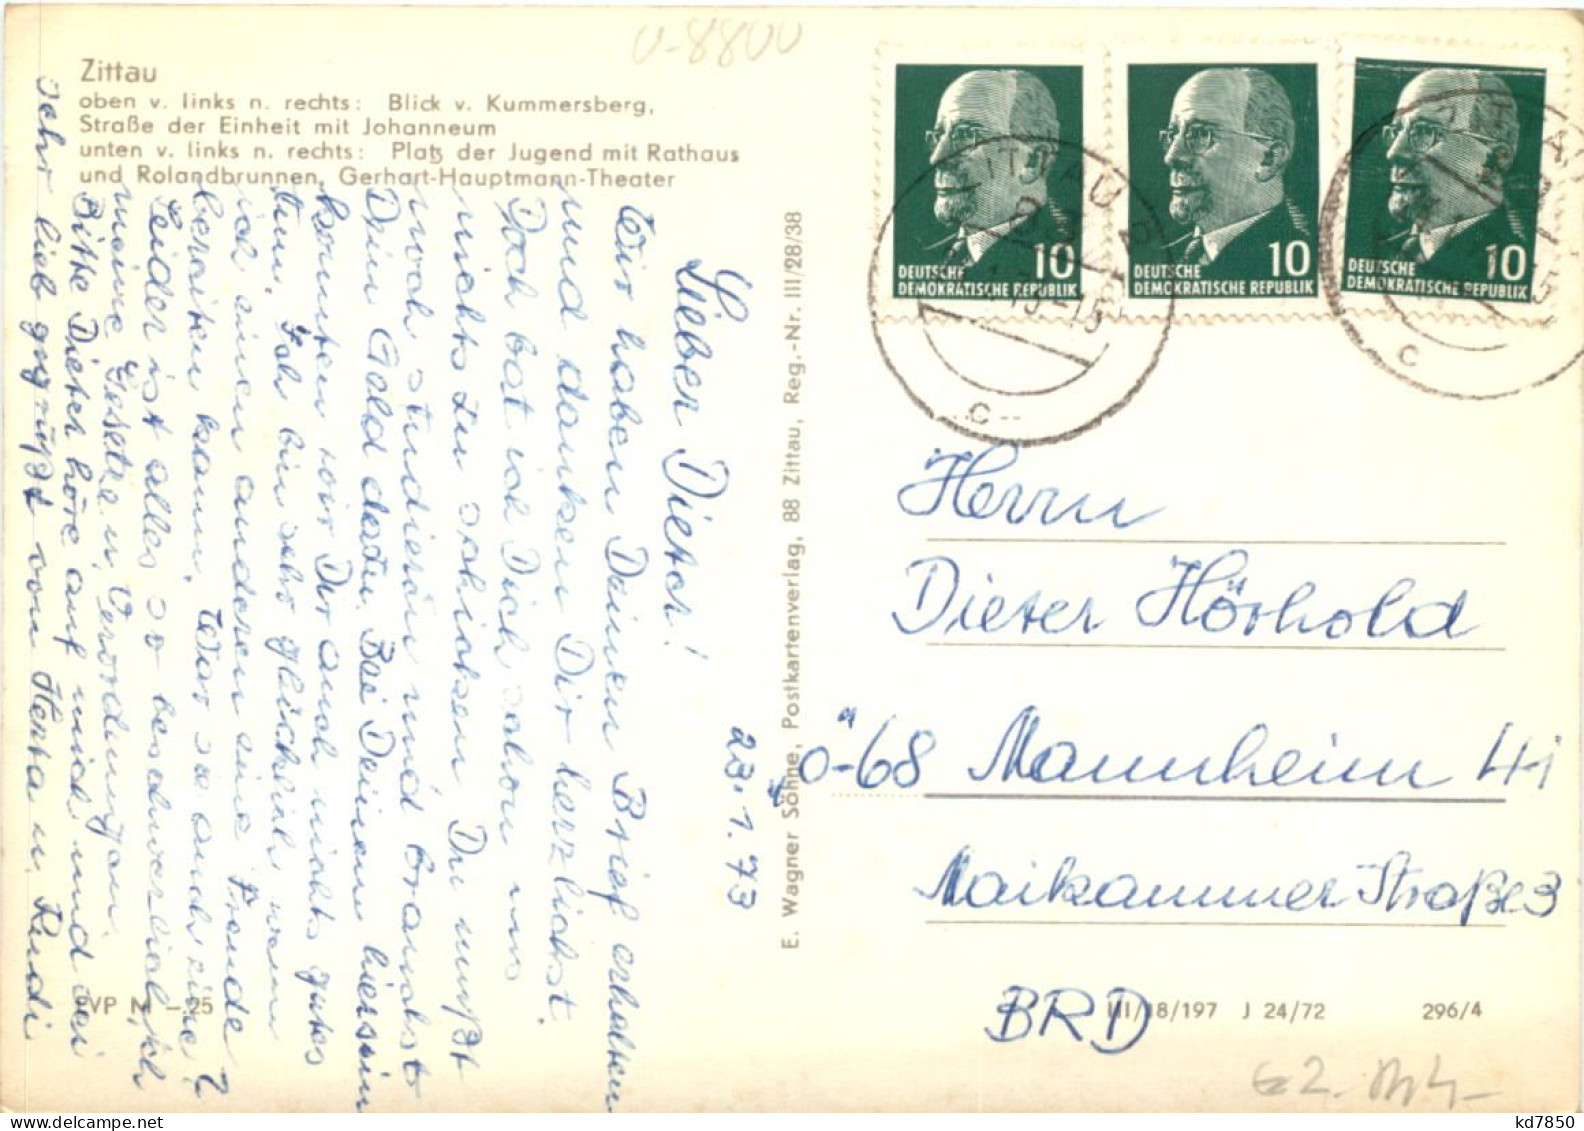 U-8800
Zittau
oben v. links n. rechts: Blick v. Kummersberg,
Straße der Einheit mit Johanneum
unten v. links n. rechts: Platz der Jugend mit Rathaus
und Rolandbrunnen, Gerhart-Hauptmann-Theater
23.1.73
Lieber Dieter!
Wir haben Deinen Brief erhalten
und danken Dir herzlichst.
Doch bat ich Dich schon uns
nichts zu schicken. Du mußt
noch studieren und brauchst
Dein Geld dazu. Bei Deinem hiersein
konnten wir Dir auch nichts gutes
tun. Ich bin sehr glücklich, wenn
ich einen anderen eine Freude
bereiten kann. War es auch eine?
Leider ist alles so beschwerlich, ich
meine Gesetze u. Verordnungen.
Bitte Dieter höre auf mich und sei
sehr lieb gegrüßt von Herta u. Rudi
PVP N -,25
E. Wagner Söhne, Postkartenverlag, 88 Zittau, Reg.-Nr. III/28/38
10
DEUTSCHE
DEMOKRATISCHE REPUBLIK
10
DEUTSCHE
DEMOKRATISCHE REPUBLIK
10
DEUTSCHE
DEMOKRATISCHE REPUBLIK
ZITTAU
c
c
Herrn
Dieter Hörhold
68 Mannheim 41
Maikammer Straße 3
BRD
III/18/197 J 24/72 296/4
kd7850